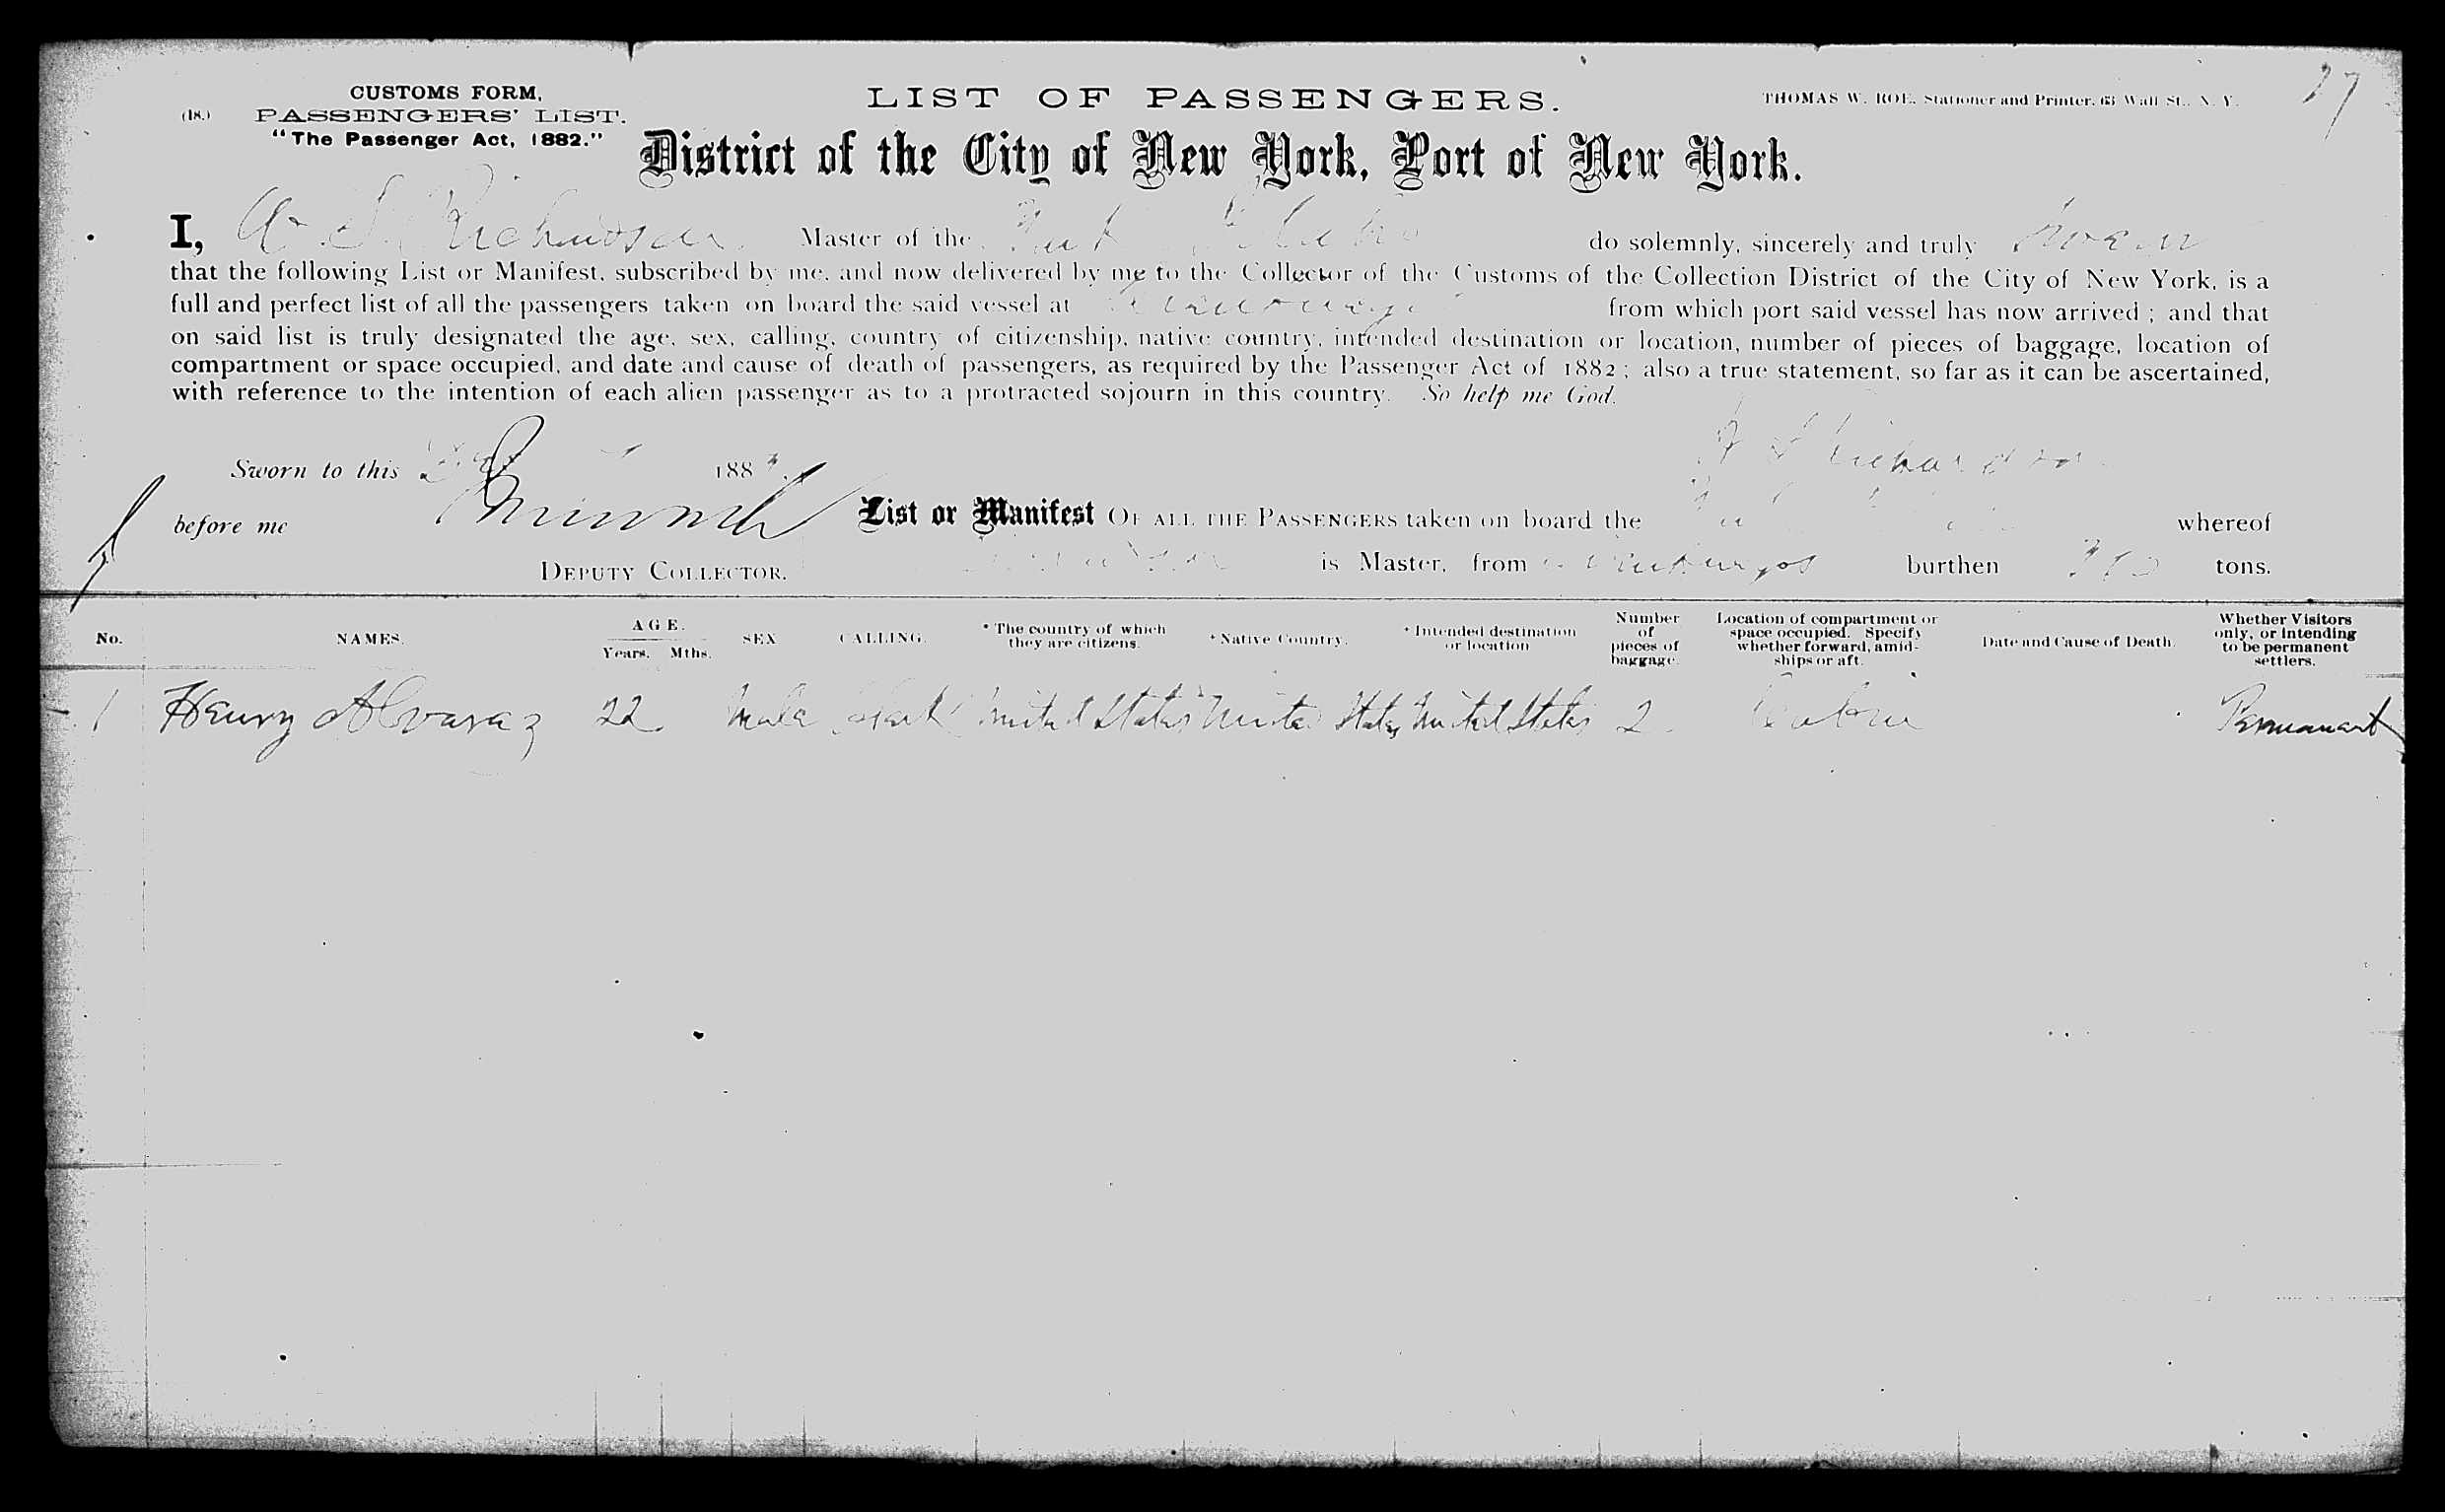 CUSTOMS FORM,
(18.) PASSENGERS' LIST.
"The Passenger Act, 1882."
LIST OF PASSENGERS.
THOMAS W. ROE, Stationer and Printer, 63 Wall St., N. Y.
District of the City of New York, Port of New York.
I, S. Richardson Master of the do solemnly, sincerely and truly swear
that the following List or Manifest, subscribed by me, and now delivered by me to the Collector of the Customs of the Collection District of the City of New York, is a
full and perfect list of all the passengers taken on board the said vessel at from which port said vessel has now arrived ; and that
on said list is truly designated the age, sex, calling, country of citizenship, native country, intended destination or location, number of pieces of baggage, location of
compartment or space occupied, and date and cause of death of passengers, as required by the Passenger Act of 1882 ; also a true statement, so far as it can be ascertained,
with reference to the intention of each alien passenger as to a protracted sojourn in this country. So help me God.
S Richardson
Sworn to this 188
before me List or Manifest OF ALL THE PASSENGERS taken on board the whereof
DEPUTY COLLECTOR. is Master, from burthen tons.
No. NAMES. AGE. Years. Mths. SEX CALLING. * The country of which they are citizens. * Native Country. * Intended destination or location Number of pieces of baggage. Location of compartment or space occupied. Specify whether forward, amidships or aft. Date and Cause of Death. Whether Visitors only, or intending to be permanent settlers.
1 Henry Alvarez 22 Male Clerk United States United States United States 2 Cabin Permanent